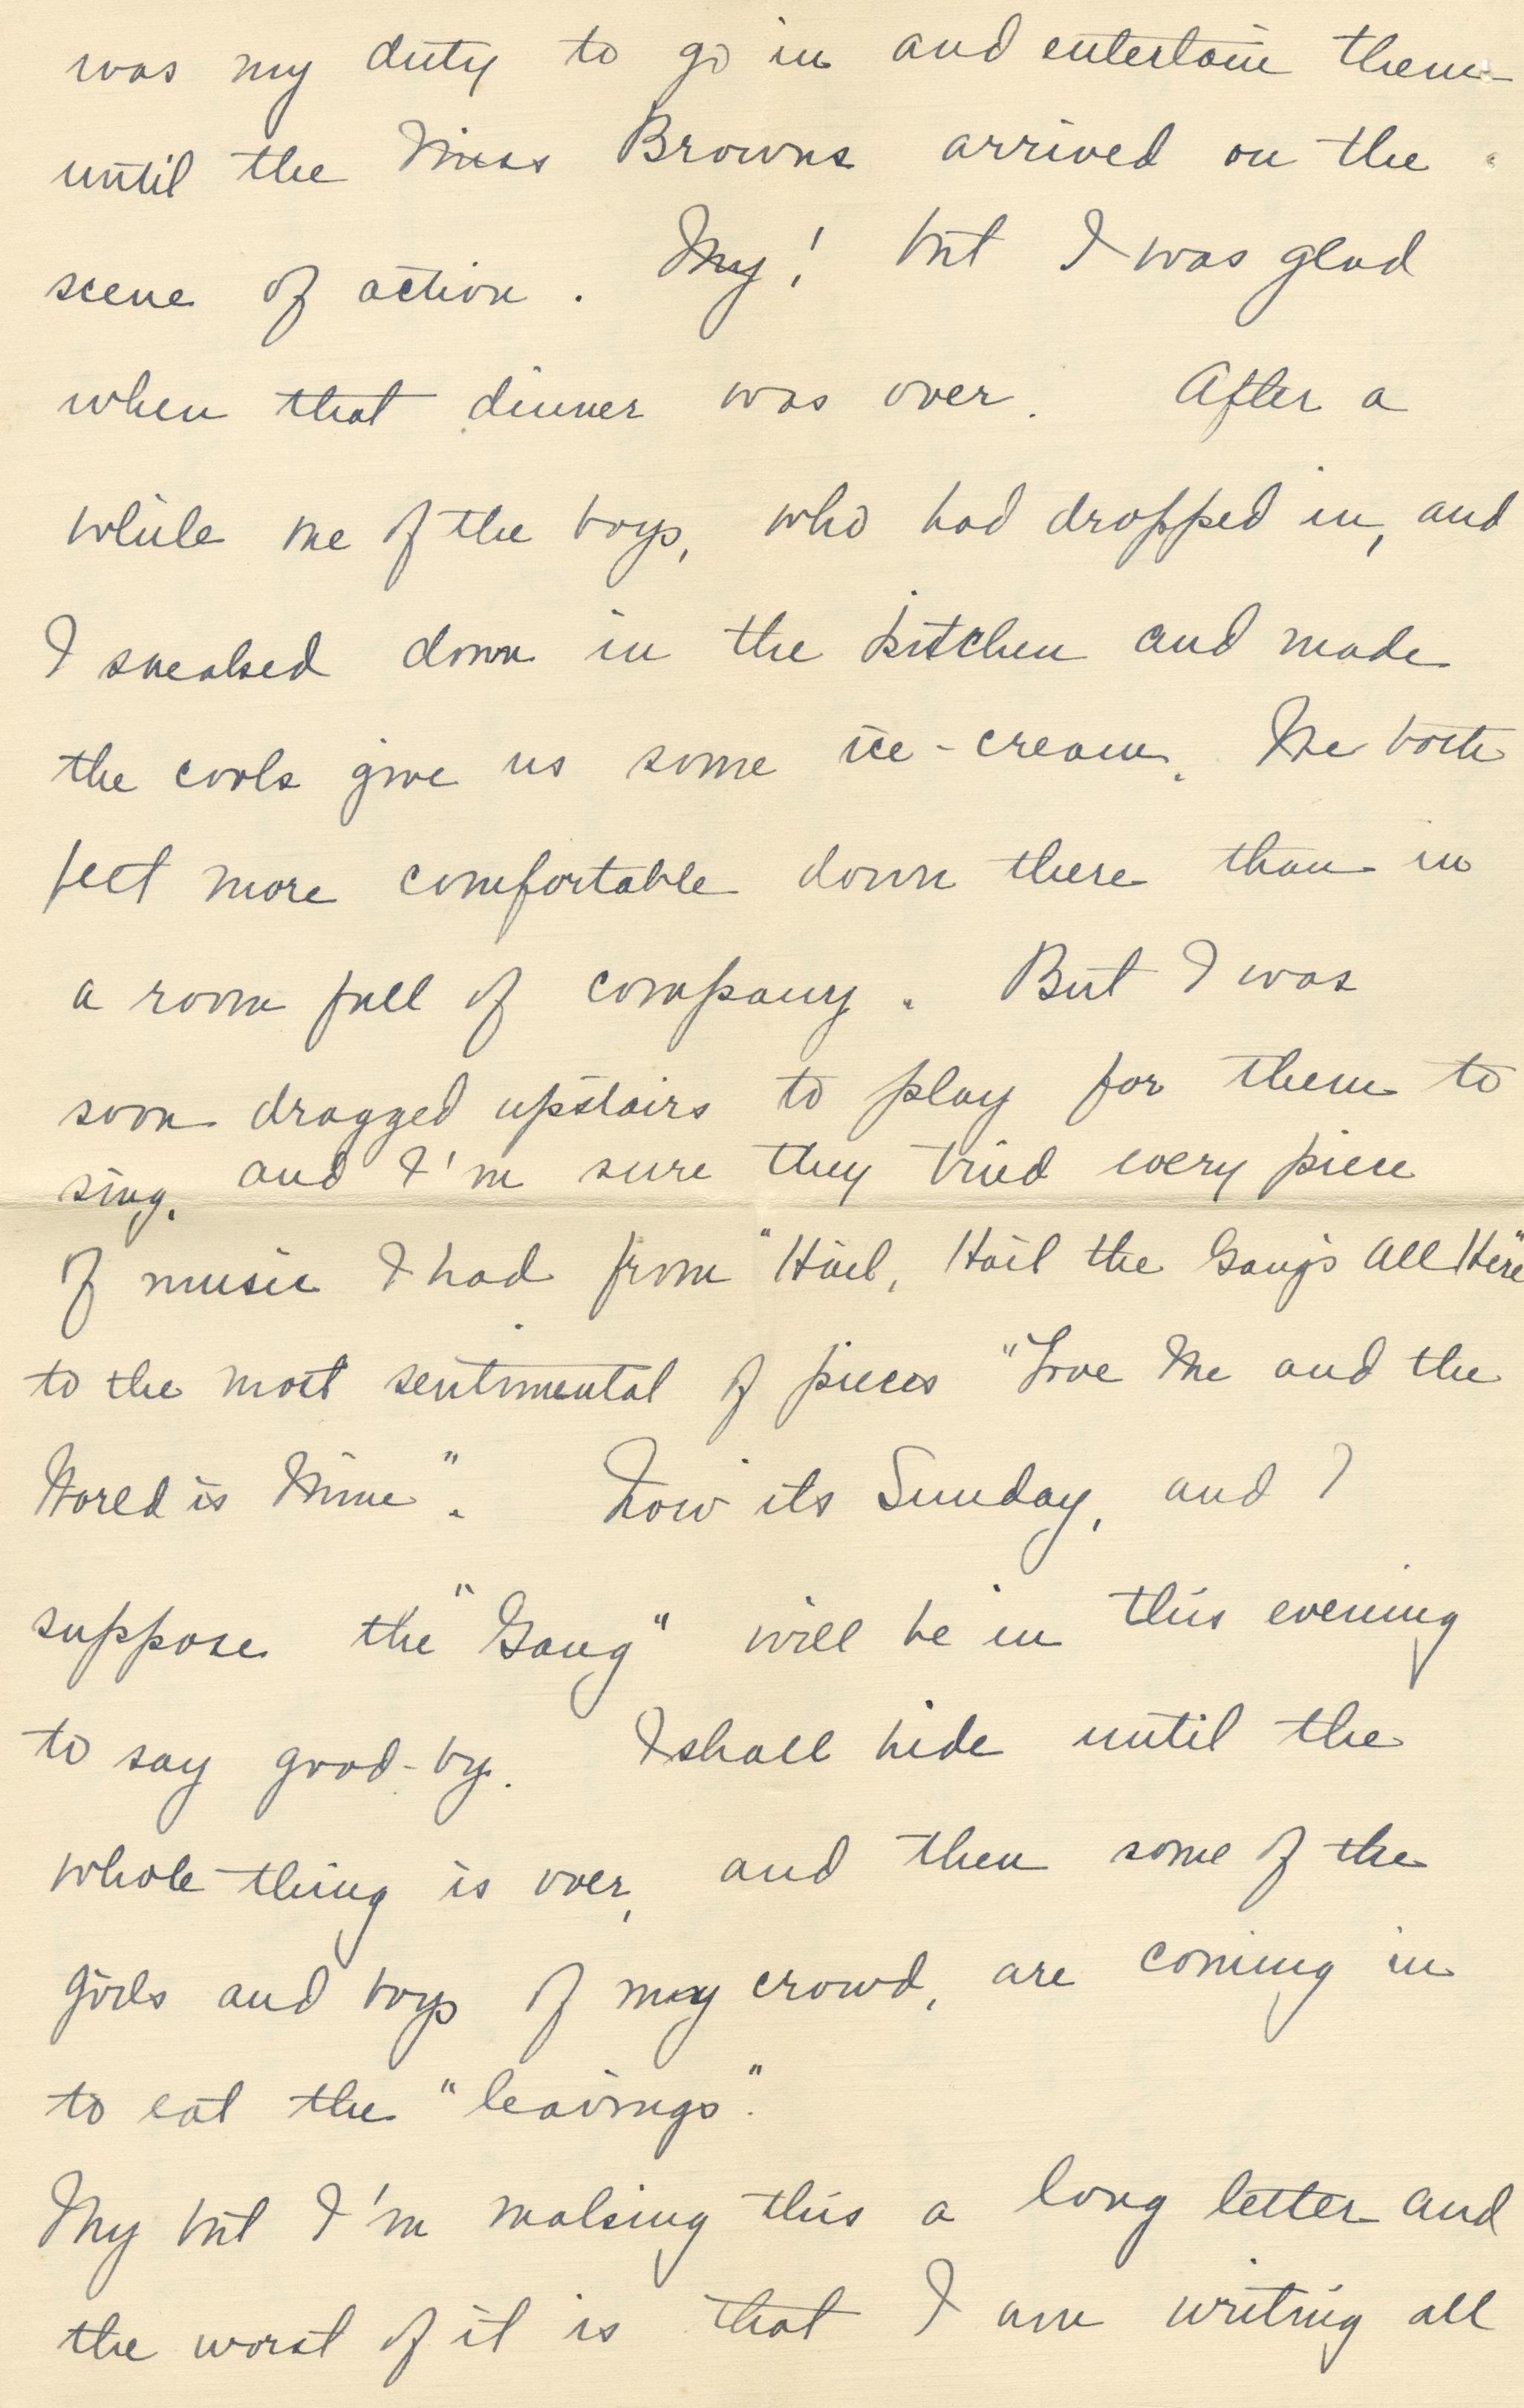 was my duty to go in and entertain them
until the Miss Browns arrived on the
scene of action. My! but I was glad
when that dinner was over. After a
while one of the boys, who had dropped in, and
I sneaked down in the kitchen and made
the cooks give us some ice-cream. We both
felt more comfortable down there than in
a room full of company. But I was
soon dragged upstairs to play for them to
sing. and I'm sure they tried every piece
of music I had from "Hail, Hail the Gang's All Here"
to the most sentimental of pieces "Love Me and the
World is Mine". Now its Sunday, and I
suppose the "Gang" will be in this evening
to say good-by. I shall hide until the
whole thing is over, and then some of the
girls and boys of my crowd, are coming in
to eat the "leavings".
My but I'm making this a long letter and
the worst of it is that I am writing all